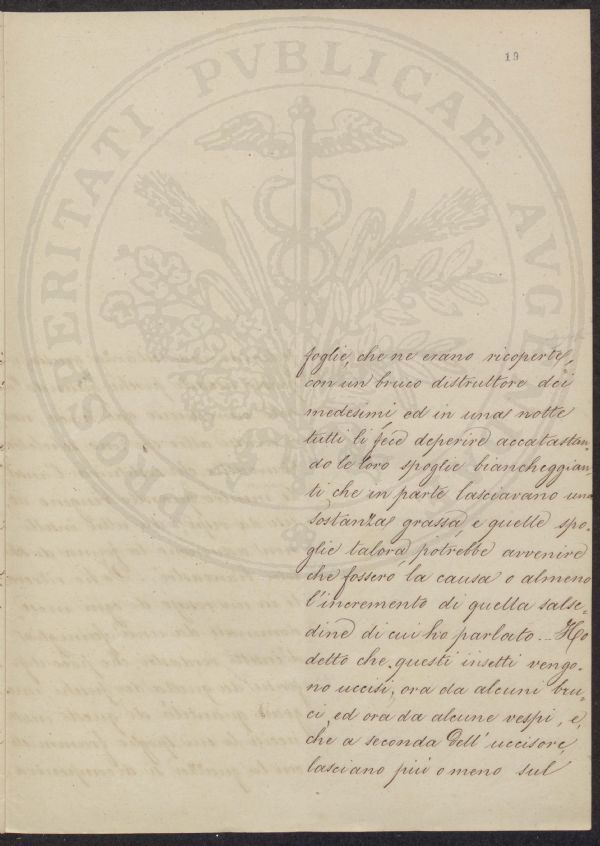 19
PROSPERITATI PVBLICAE AVGENDAE
foglie, che ne erano ricoperte,
con un bruco distruttore dei
medesimi, ed in una notte
tutti li fece deperire accatastan-
do le loro spoglie biancheggian-
ti che in parte lasciavano una
sostanza grassa, e quelle spo-
glie talora, potrebbe avvenire
che fossero, la causa o almeno
l'incremento di quella salse-
dine di cui ho parlato... Ho
detto che questi insetti vengo-
no uccisi, ora da alcuni bru-
ci, ed ora da alcune vespi, e,
che a seconda dell'uccisore,
lasciano più o meno sul